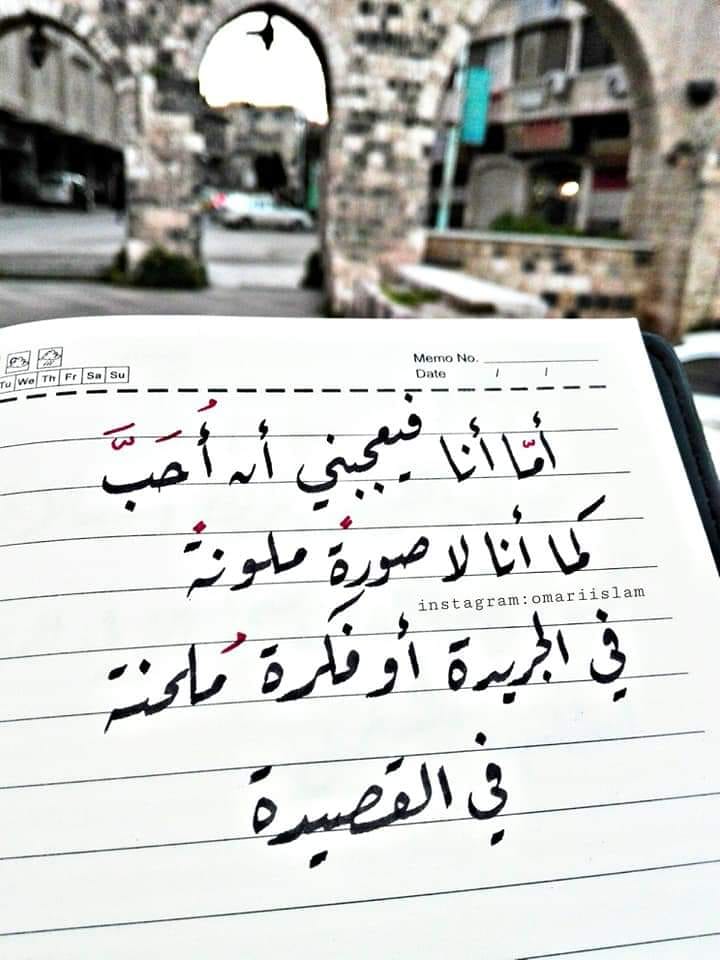 Memo No.
Tu We Th Fr Sa Su
Date / /
أمّا أنا فيُعجبني أن أُحَبَّ
كما أنا لا صورةً ملونةً
instagram:omariislam
في الجريدة أو فكرة مُلحنة
في القصيدة